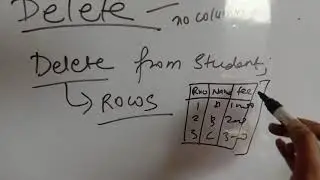 Delete — no colum
Delete from Student;
→ ROWS
Rno Name fee
1 B
2 B
3 C